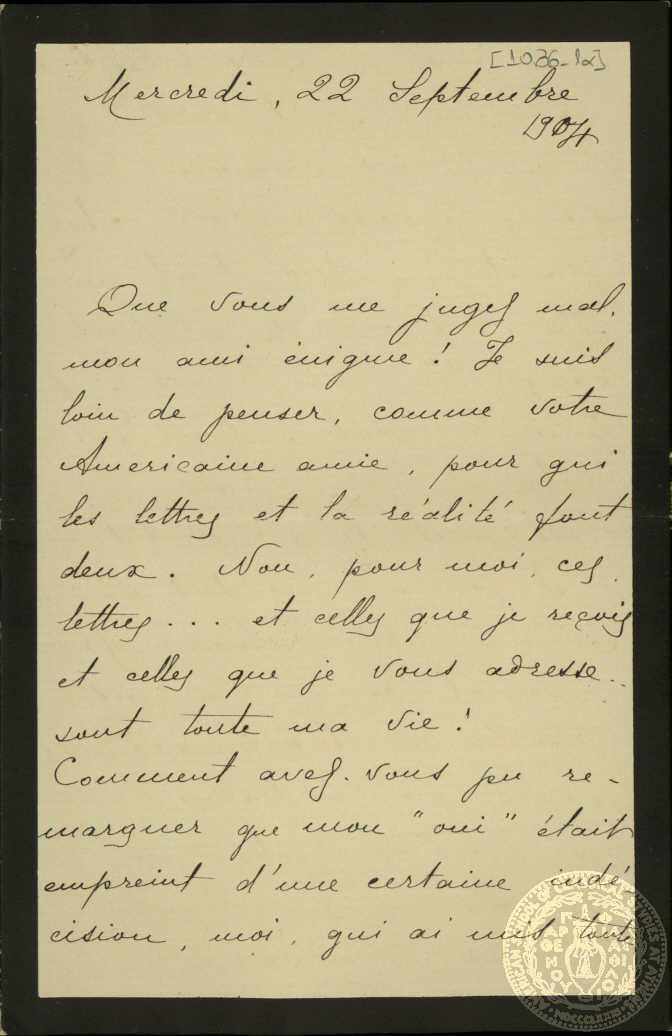 [1036-12]
Mercredi, 22 Septembre
1904
Que vous me jugez mal,
mon ami énigme ! Je suis
loin de penser, comme votre
Americaine amie, pour qui
les lettres et la réalité font
deux. Non, pour moi, ces
lettres... et celles que je reçois
et celles que je vous adresse..
sont toute ma vie !
Comment avez-vous pu re-
marquer que mon "oui" était
empreint d'une certaine indé-
cision, moi, qui ai mis toute